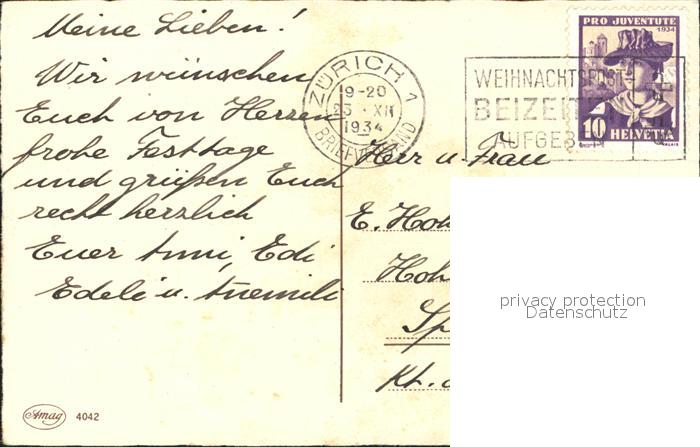 Meine Lieben!
Wir wünschen
Euch von Herzen
frohe Festtage
und grüßen Euch
recht herzlich
Euer Anni, Edi
Edeli u. Annemili
ZÜRICH 1
19-20
23. XII
1934
BRIEFVERSAND
WEIHNACHTSPOST
BEIZEITEN
AUFGEBEN
PRO JUVENTUTE
1934
10 HELVETIA
Herr u. Frau
E. Hoh
Hoh
Sp
Kt.
privacy protection
Datenschutz
Amag 4042